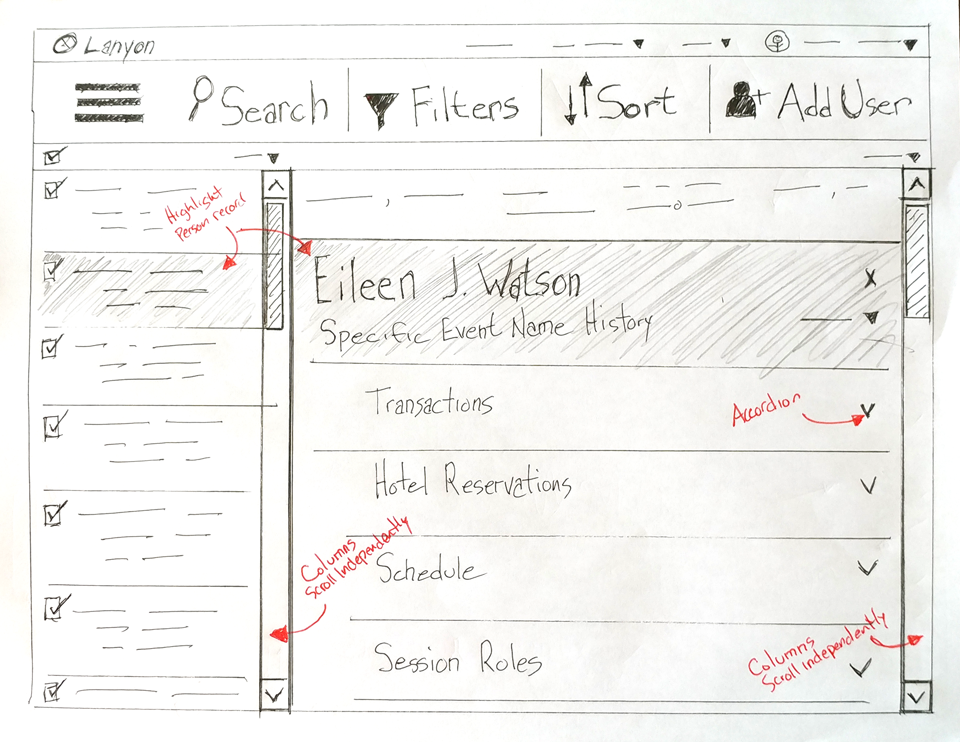 Lanyon
Search
Filters
Sort
Add User
Highlight
Person record
Eileen J. Watson
x
Specific Event Name History
Transactions
Accordion
Hotel Reservations
Columns
Scroll Independently
Schedule
Session Roles
Columns
Scroll Independently